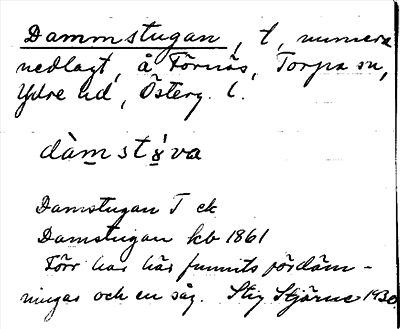 Dammstugan, t, numera
nedlagt, å Törnäs, Torpa sn,
Ydre hd, Österg. l.
dàmstɣ́va
Damstugan T ek
Damstugan kb 1861
Förr har här funnits fördäm-
ningar och en såg. Stig Stjärne 1930.